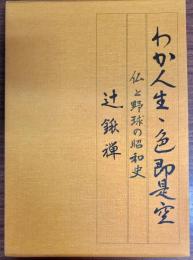 わが人生、色即是空
仏と野球の昭和史
辻鍬禅